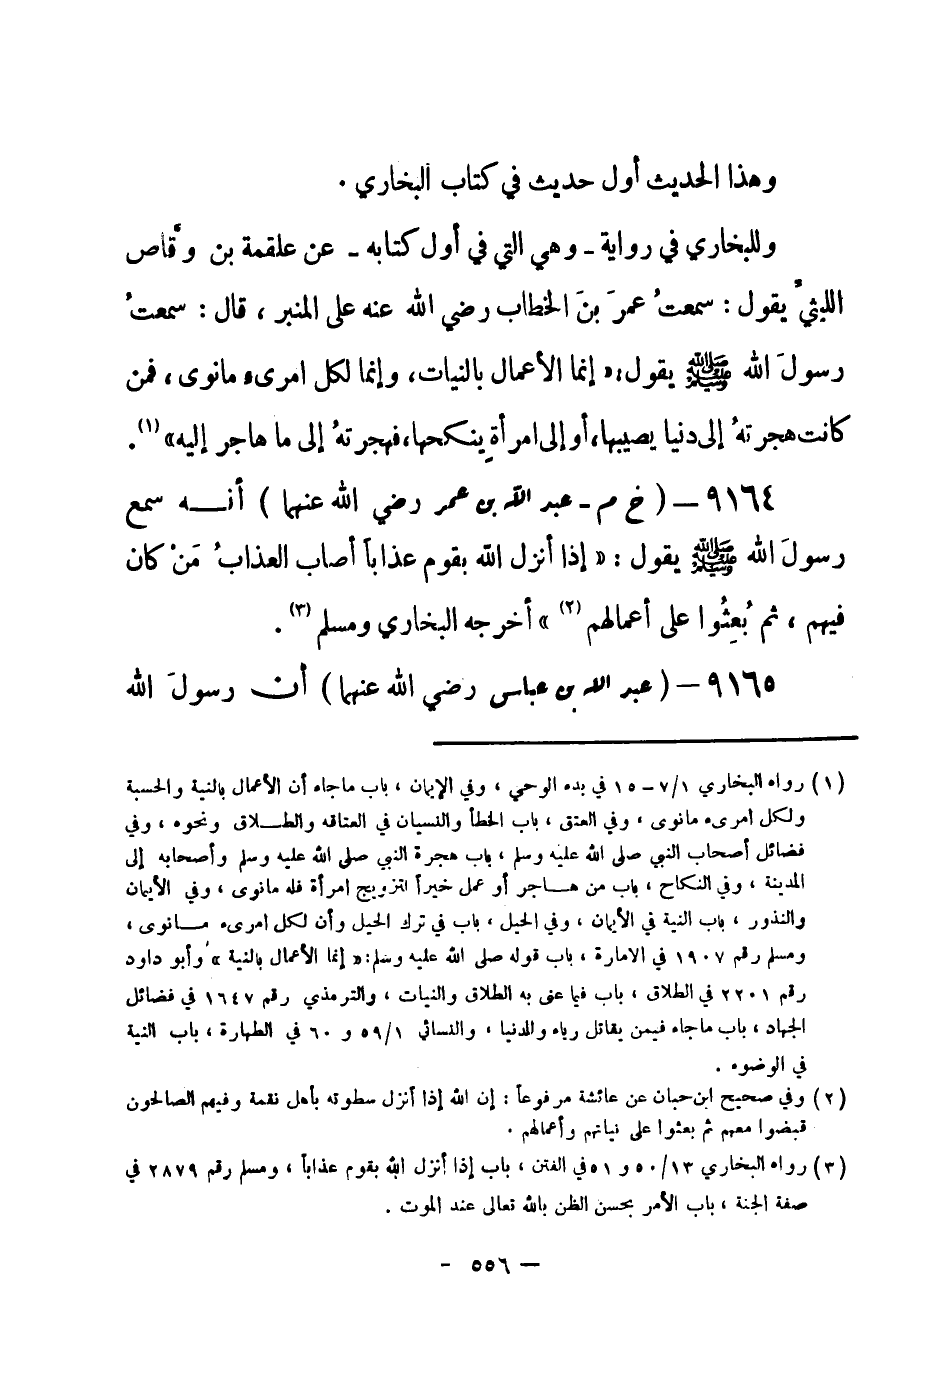 وهذا الحديث أول حديث في كتاب البخاري .
وللبخاري في رواية ـ وهي التي في أول كتابه ـ عن علقمة بن وقَّاص
الليثيَّ يقول : سمعتُ عمرَ بنَ الخطاب رضي الله عنه على المنبر ، قال : سمعتُ
رسولَ الله ﷺ يقول : « إنما الأعمال بالنيات ، وإنما لكل امرىء ما نوى ، فمن
كانت هجرتهُ إلى دنيا يصيبها ، أو إلى امرأةٍ ينكحها ، فهجرتهُ إلى ما هاجر إليه » (١) .
٩١٦٤ ـ ( خ م ـ عبد الله بن عمر رضي الله عنهما ) أنــه سمع
رسولَ الله ﷺ يقول : « إذا أنزل الله بقوم عذاباً أصاب العذابُ مَنْ كان
فيهم ، ثم بُعِثُوا على أعمالهم (٢) » أخرجه البخاري ومسلم (٣) .
٩١٦٥ ـ ( عبد الله بن عباس رضي الله عنهما ) أن رسولَ الله
(١) رواه البخاري ٧/١ ـ ١٥ في بدء الوحي ، وفي الإيمان ، باب ماجاء أن الأعمال بالنية والحسبة
ولكل امرىء مانوى ، وفي العتق ، باب الخطأ والنسيان في العتاقه والطــلاق ونحوه ، وفي
فضائل أصحاب النبي صلى الله عليه وسلم ، باب هجرة النبي صلى الله عليه وسلم وأصحابه إلى
المدينة ، وفي النكاح ، باب من هــاجر أو عمل خيراً لتزويج امرأة فله مانوى ، وفي الأيمان
والنذور ، باب النية في الأيمان ، وفي الحيل ، باب في ترك الحيل وأن لكل امرىء مــانوى ،
ومسلم رقم ١٩٠٧ في الامارة ، باب قوله صلى الله عليه وسلم : « إنما الأعمال بالنية » وأبو داود
رقم ٢٢٠١ في الطلاق ، باب فيما عنى به الطلاق والنيات ، والترمذي رقم ١٦٤٧ في فضائل
الجهاد ، باب ماجاء فيمن يقاتل رياء وللدنيا ، والنسائي ٥٩/١ و ٦٠ في الطهارة ، باب النية
في الوضوء .
(٢) وفي صحيح ابن حبان عن عائشة مرفوعاً : إن الله إذا أنزل سطوته بأهل نقمة وفيهم الصالحون
قبضوا معهم ثم بعثوا على نياتهم وأعمالهم .
(٣) رواه البخاري ٥٠/١٣ و ٥١ في الفتن ، باب إذا أنزل الله بقوم عذاباً ، ومسلم رقم ٢٨٧٩ في
صفة الجنة ، باب الأمر بحسن الظن بالله تعالى عند الموت .
ـ ٥٥٦ ـ